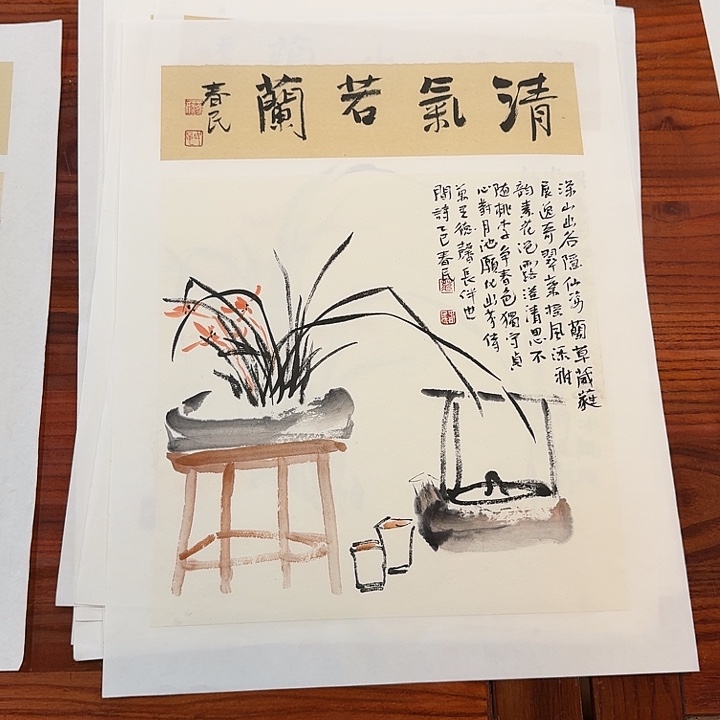 清氣若蘭
春民
深山幽谷隐仙姿蘭草葳蕤
展逸奇翠葉摇風添雅
韵素花浥露溢清思不
随桃李争春色獨守貞
心對月池願化幽芳傳
萬里德馨長伴世
間詩乙巳春民